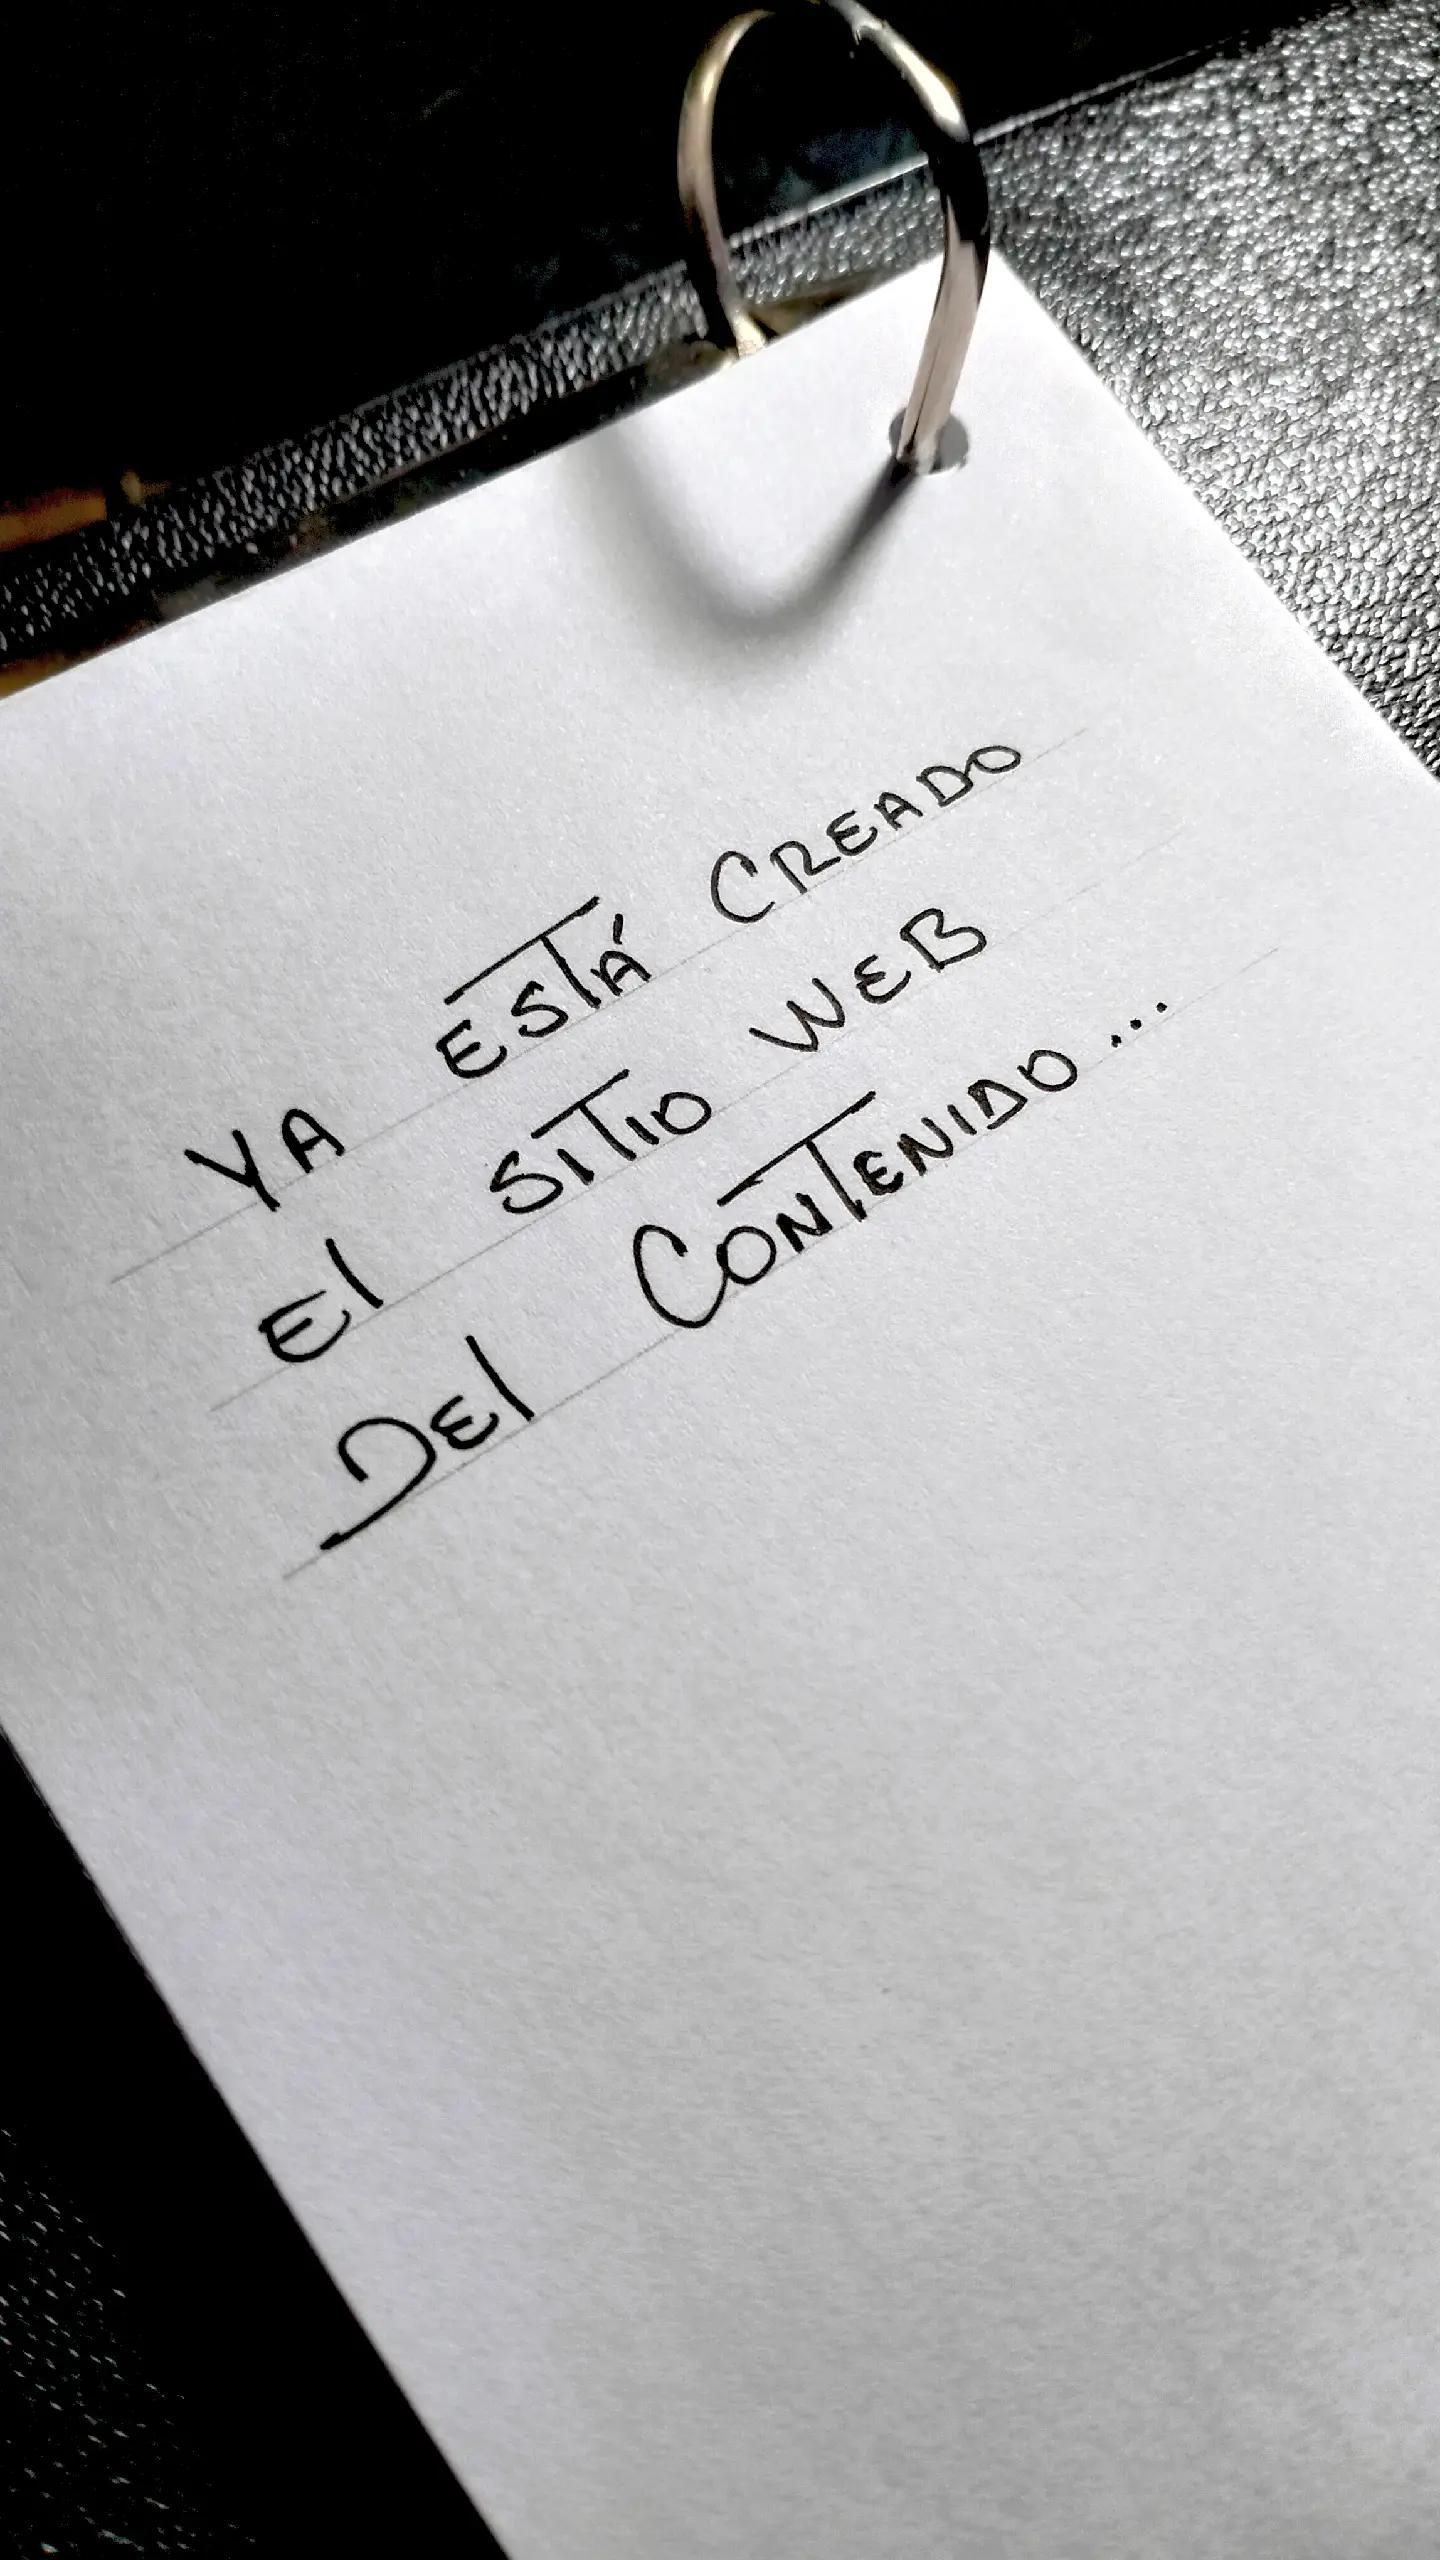 YA ESTÁ CREADO
El SITIO WEB
DEl CONTENIDO...